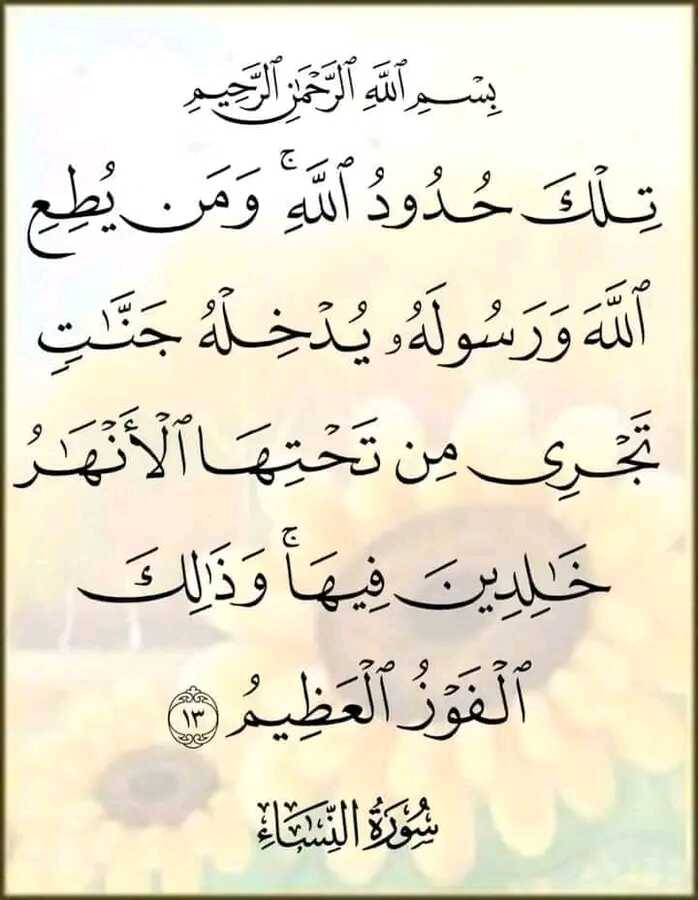 بِسْمِ ٱللَّهِ ٱلرَّحْمَٰنِ ٱلرَّحِيمِ
تِلْكَ حُدُودُ ٱللَّهِ ۚ وَمَن يُطِعِ
ٱللَّهَ وَرَسُولَهُۥ يُدْخِلْهُ جَنَّٰتٍ
تَجْرِى مِن تَحْتِهَا ٱلْأَنْهَٰرُ
خَٰلِدِينَ فِيهَا ۚ وَذَٰلِكَ
ٱلْفَوْزُ ٱلْعَظِيمُ ١٣
سُورَةُ النِّسَاءِ